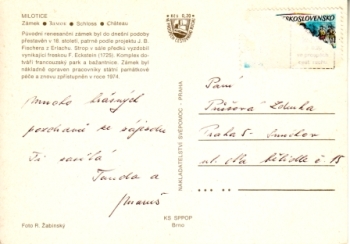 MILOTICE
Zámek ● Замок ● Schloss ● Château
Původní renesanční zámek byl do dnešní podoby
přestavěn v 18. století, patrně podle projektu J. B.
Fischera z Erlachu. Strop v sále předku vyzdobil
vynikající freskou F. Eckstein (1725). Komplex do-
tváří francouzský park a bažantnice. Zámek byl
nákladně opraven pracovníky státní památkové
péče a znovu zpřístupněn v roce 1974.
Kčs 0,30
ČESKOSLOVENSKO
NAKLADATELSTVÍ SVĚROMOC - PRAHA
Mnoho krásných
pozdravů ze zájezdu
Ti zasílá
a
Paní
Zdenka
Praha 5 - Smíchov
ul. Na bělidle č 15
Foto R. Žabinský
KS SPPOP
Brno